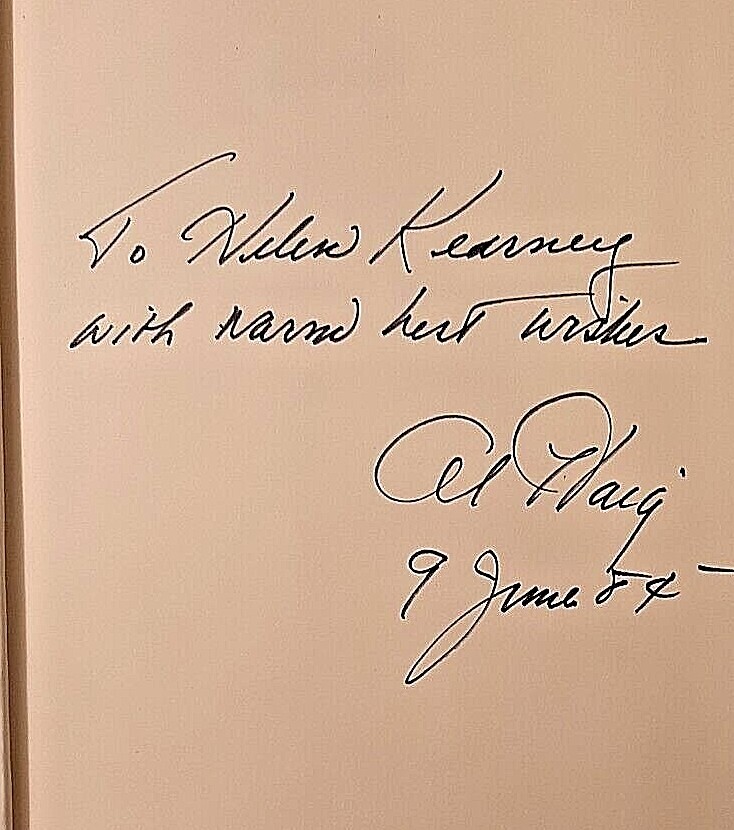 To Helen Kearney
with warm best wishes
Al Haig
9 June 84